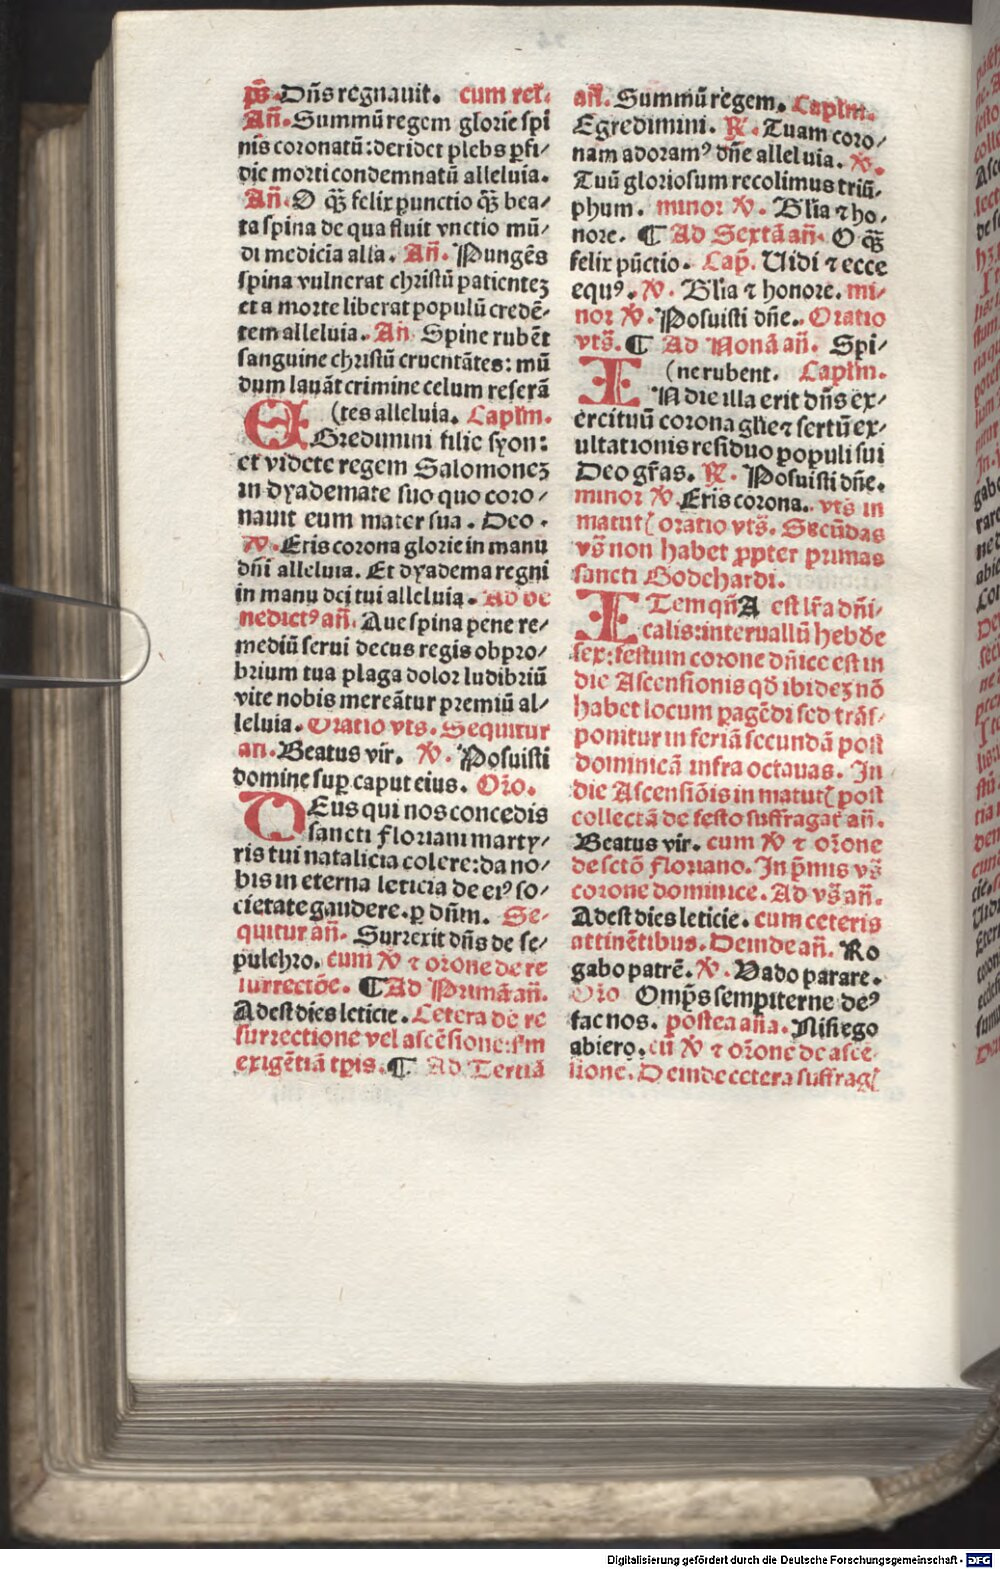 ps̄ Dn̄s regnauit. cum rel̄.
An̄. Summū regem glorie spi
nis coronatū: deridet plebs ꝑfi/
die morti condemnatū alleluia.
An̄. O qȝ̄ felix punctio qȝ̄ bea/
ta spina de qua fluit vnctio mū/
di medicia alľa. An̄. Pungēs
spina vulnerat christū patienteȝ
et a morte liberat populū credē/
tem alleluia. An̄ Spine rubēt
sanguine christū cruentātes: mū
dum lauāt crimine celum reserā
(tes alleluia. Caplm̄.
EGredimini filie syon:
et videte regem Salomoneȝ
in dyademate suo quo coro/
nauit eum mater sua. Deo.
℣. Eris corona glorie in manu
dn̄i alleluia. Et dyadema regni
in manu dei tui alleluia. Ad be
nedictꝰ an̄. Aue spina pene re/
mediū serui decus regis obpro/
brium tua plaga dolor ludibriū
vite nobis mereātur premiū al/
leluia. Oratio vts. Sequitur
an. Beatus vir. ℣. Posuisti
domine sup caput eius. Oro.
DEus qui nos concedis
sancti floriani marty/
ris tui natalicia colere: da no/
bis in eterna leticia de eiꝰ so/
cietate gaudere. ꝑ dn̄m. Se/
quitur an̄. Surrexit dn̄s de se/
pulchro. cum ℣ ⁊ orōne de re
surrectōe. ¶ Ad Primā an̄.
Adest dies leticie. Cetera de re
surrectione vel ascēsione: sm̄
exigētiā tꝑis. ¶ Ad Tertiā
an̄. Summū regem. Caplm̄.
Egredimini. ℟. Tuam coro/
nam adoramꝰ dn̄e alleluia. ℣.
Tuū gloriosum recolimus triū/
phum. minor ℣. Gľia ⁊ ho/
nore. ¶ Ad Sextā an̄. O qȝ̄
felix pūctio. Cap̄. Uidi ⁊ ecce
equꝰ. ℣. Gľia ⁊ honore. mi/
nor ℣. Posuisti dn̄e. Oratio
vts̄. ¶ Ad Nonā an̄. Spi/
(ne rubent. Caplm̄.
IN die illa erit dn̄s ex/
ercituū corona gľie ⁊ sertū ex/
ultationis residuo populi sui
Deo gr̄as. ℟. Posuisti dn̄e.
minor ℣. Eris corona. vts̄ in
matut̄ oratio vts̄. Secūdas
vs̄ non habet ꝓpter primas
sancti Godehardi.
ITem qn̄ A est lr̄a dn̄i/
calis: interuallū hebde
sex: festum corone dn̄ice est in
die Ascensionis qđ ibideȝ nō
habet locum ꝑagēdi sed trās/
ponitur in feriā secundā post
dominicā infra octauas. In
die Ascensiōis in matut̄ post
collectā de festo suffragat̄ an̄.
Beatus vir. cum ℣ ⁊ orōne
de sctō floriano. In p̄mis vs̄
corone dominice. Ad vs̄ an̄.
Adest dies leticie. cum ceteris
attinētibus. Deinde an̄. Ro
gabo patrē. ℣. Vado parare.
Oro Omp̄s sempiterne deꝰ
fac nos. postea an̄a. Nisi ego
abiero. cū ℣ ⁊ orōne de asce
sione. Deinde cetera suffraḡ
Digitalisierung gefördert durch die Deutsche Forschungsgemeinschaft - DFG